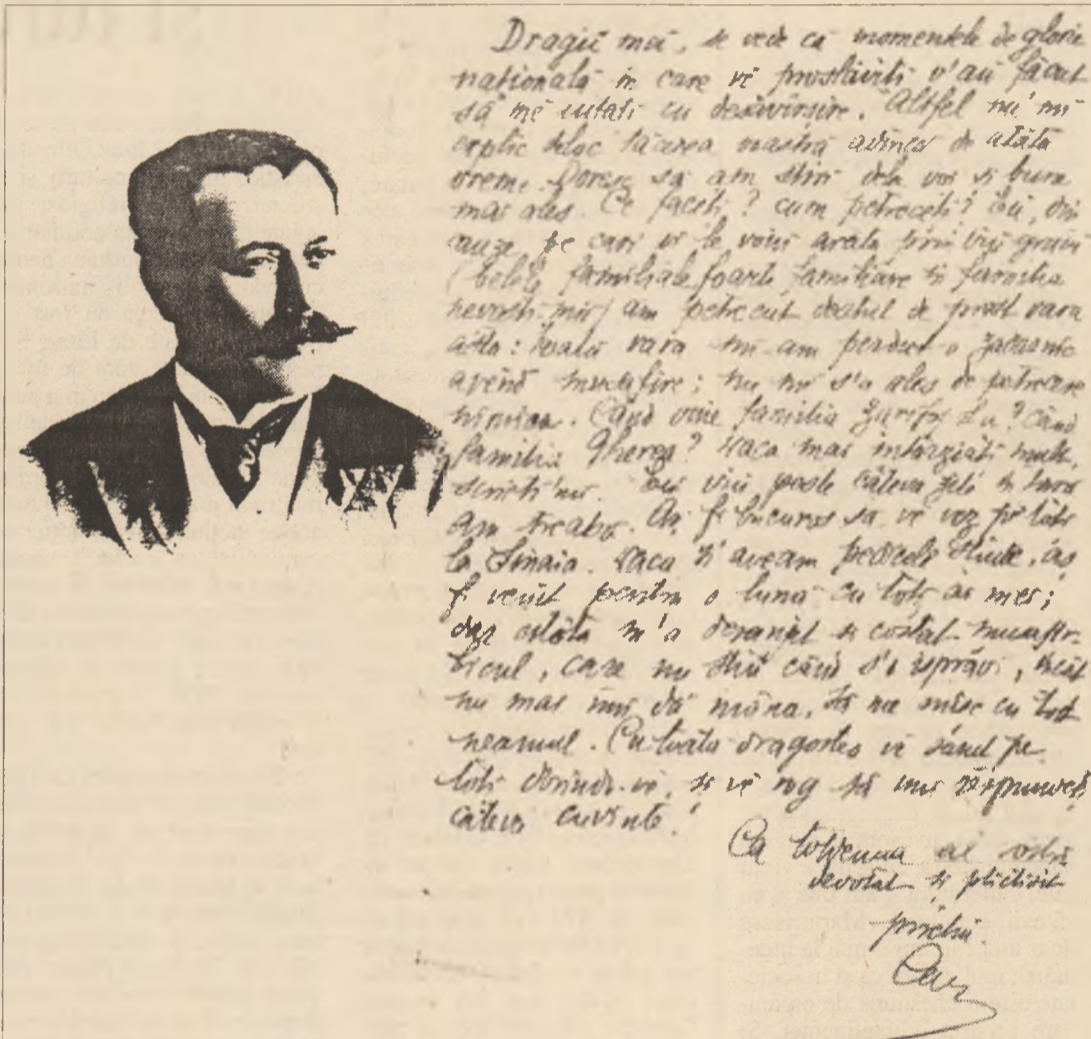 Dragii mei, se vede că momentele de glorie
națională în care vĕ proslăviți v'au făcut
să mĕ uitați cu desăvîrșire. Altfel nu'mi
explic deloc tăcerea voastră adîncă de atâta
vreme. Doresc să am știri dela voi și bune
mai ales. Ce faceți? cum petreceți? Eu, din
cauze, pe cari vi le voiŭ arăta prin viŭ graiŭ
(belele familiale foarte familiare și
nevesti-mi) am petrecut destul de prost vara
asta: toată vara mi-am pierdut o
avênd musafiri; nu mi s'a ales de petrecere
nimica. Când vine familia Zarifopolu? Când
familia Gherea? Dacă mai întârziați mult,
scrieți'mi. Eu viŭ peste câteva zile
am treabă. Aș fi bucuros să vĕ vĕz pe toți
la Sinaia. Dacă n'aveam piedicele știute, aș
fi venit pentru o lună cu toți ai mei;
dar atâta m'a deranjat și costat musafir-
lîcul, care nu știŭ când s'o isprăvi, încât
nu mai îmi dă mâna, să me mișc cu tot
neamul. Cu toată dragostea vĕ sărut pe
toți dorindu-vĕ, și vĕ rog să îmi rĕspundeți
câteva cuvinte!
Ca totdeauna al vostru
devotat și plictisit
prieten
Car